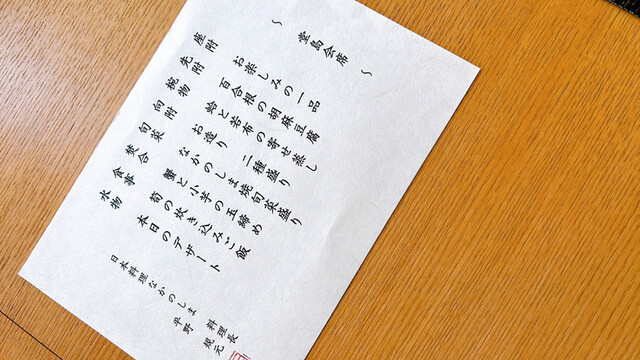 ～ 堂島会席 ～
座附 お楽しみの一品
先附 百合根の胡麻豆腐
椀物 蛤と若布の寄せ蒸し
向附 お造り 二種盛り
旬菜 なかのしま焼旬菜盛り
焚合 蟹と小芋の玉締め
食事 筍の炊き込みご飯
水物 本日のデザート
日本料理なかのしま
料理長 平野 規元